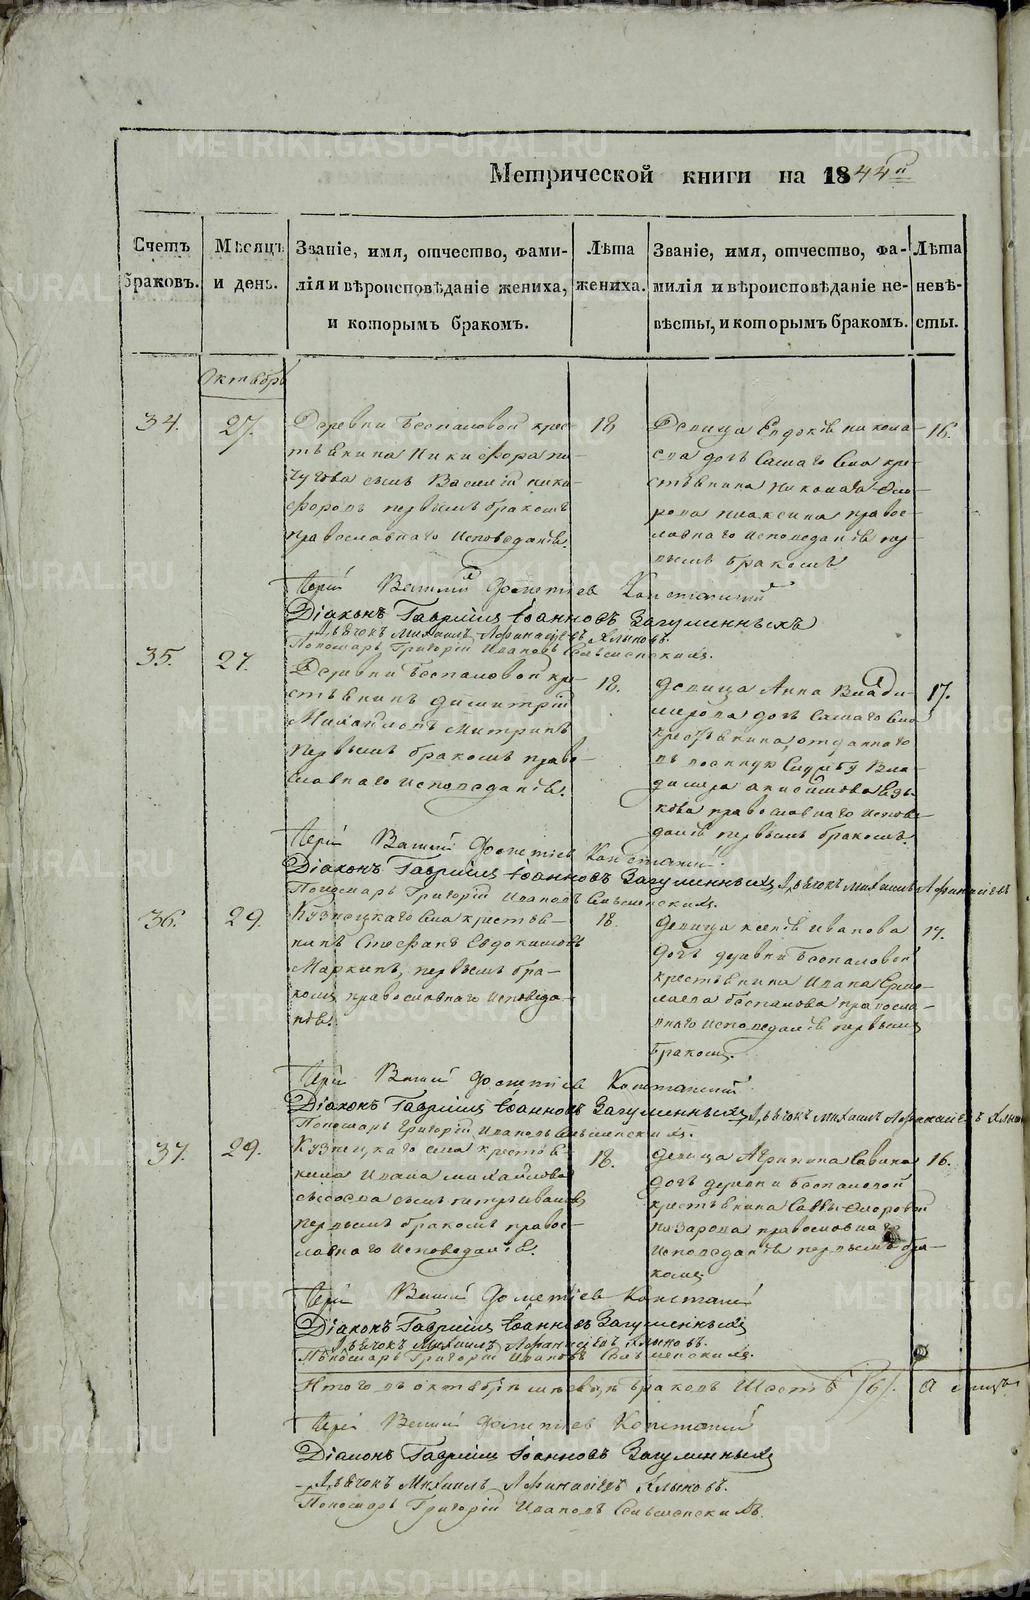 Метрической книги на 1844й
Счетъ браковъ.
Мѣсяцъ и день.
Званіе, имя, отчество, фами-
лія и вѣроисповѣданіе жениха,
и которымъ бракомъ.
Лѣта
жениха.
Званіе, имя, отчество, фа-
милія и вѣроисповѣданіе не-
вѣсты, и которымъ бракомъ.
Лѣта
невѣ-
сты.
Октябрь
34.
27.
Деревни Беспаловой крес-
тьянина Никифора
сынъ Василій Ники-
форовъ первымъ бракомъ
православнаго исповеданія.
18
Девица Евдокія Никола-
ева дочь самаго села кре-
стьянина Николая Фео-
дорова правос-
лавнаго исповеданія пер-
вымъ бракомъ
16.
Іерей Василій Дометіев Констанскій
Діаконъ Гавріилъ Іоанновъ Загуменныхъ
Дьячокъ Михаилъ Афанасіевъ Хлыновъ.
Пономарь Григорій Ивановъ
35.
27.
Деревни Беспаловой кре-
стьянинъ Димитрій
Михайловъ Митринъ
первымъ бракомъ право-
славнаго исповеданія.
18.
Девица Анна Влади-
мирова дочь самаго села
крестьянина, отданнаго
въ военную службу Вла-
димера
православнаго испове-
данія первымъ бракомъ.
17.
Іерей Василій Дометіев Констанскій
Діаконъ Гавріилъ Іоанновъ Загуменныхъ Дьячокъ Михаилъ Афанасіевъ
Пономарь Григорій Ивановъ
36.
29.
Кузнецкаго села крестья-
нинъ Стефанъ Евдокимовъ
Маркинъ, первымъ бра-
комъ православнаго исповеда-
нія.
18.
Девица Ксенія Иванова
дочь деревни Беспаловой
крестьянина Ивана Ермо-
лаева Беспалова правосла-
внаго исповеданія первымъ
бракомъ.
17.
Іерей Василій Дометіев Констанскій
Діаконъ Гавріилъ Іоанновъ Загуменныхъ Дьячокъ Михаилъ Афанасіевъ Хлыновъ
Пономарь Григорій Ивановъ
37.
29.
Кузнецкаго села крестья-
нина Ивана Михайлова
Сысоева сынъ Ивановъ
первымъ бракомъ правос-
лавнаго исповеданія.
18.
Девица Агрипина Савина
дочь деревни Беспаловой
крестьянина Саввы Феодорова
Назарова православнаго
исповеданія первымъ бра-
комъ
16.
Іерей Василій Дометіев Констанскій
Діаконъ Гавріилъ Іоанновъ Загуменныхъ
Дьячокъ Михаилъ Афанасіевъ Хлыновъ.
Пономарь Григорій Ивановъ
Итого въ октябрѣ месяцѣ браковъ шесть /6/.
Іерей Василій Дометіев Констанскій
Діаконъ Гавріилъ Іоанновъ Загуменныхъ
Дьячокъ Михаилъ Афанасіевъ Хлыновъ.
Пономарь Григорій Ивановъ
METRIKI.GASO-URAL.RU